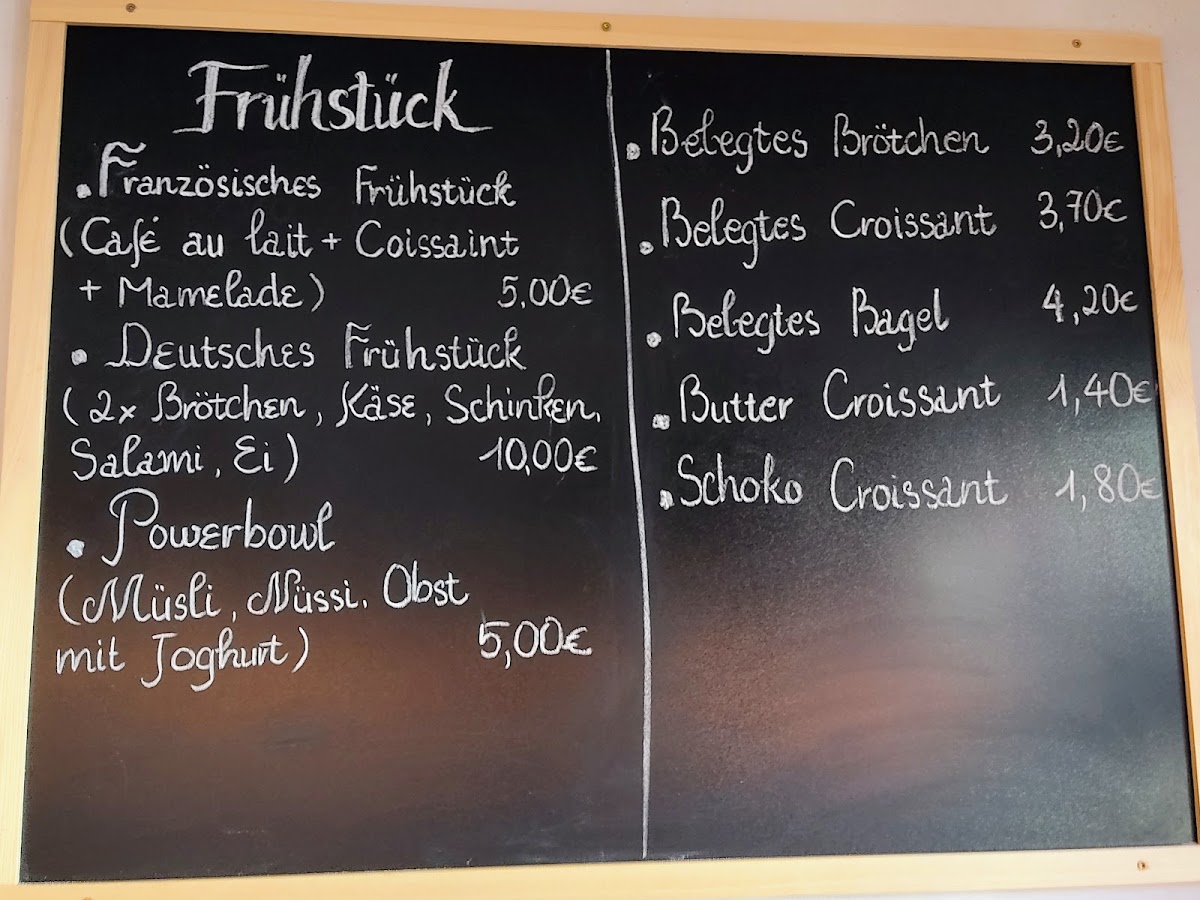 Frühstück
• Französisches Frühstück
(Café au lait + Coissaint
+ Mamelade) 5,00€
• Deutsches Frühstück
(2x Brötchen, Käse, Schinken,
Salami, Ei) 10,00€
• Powerbowl
(Müsli, Nüssi, Obst
mit Joghurt) 5,00€
• Belegtes Brötchen 3,20€
• Belegtes Croissant 3,70€
• Belegtes Bagel 4,20€
• Butter Croissant 1,40€
• Schoko Croissant 1,80€